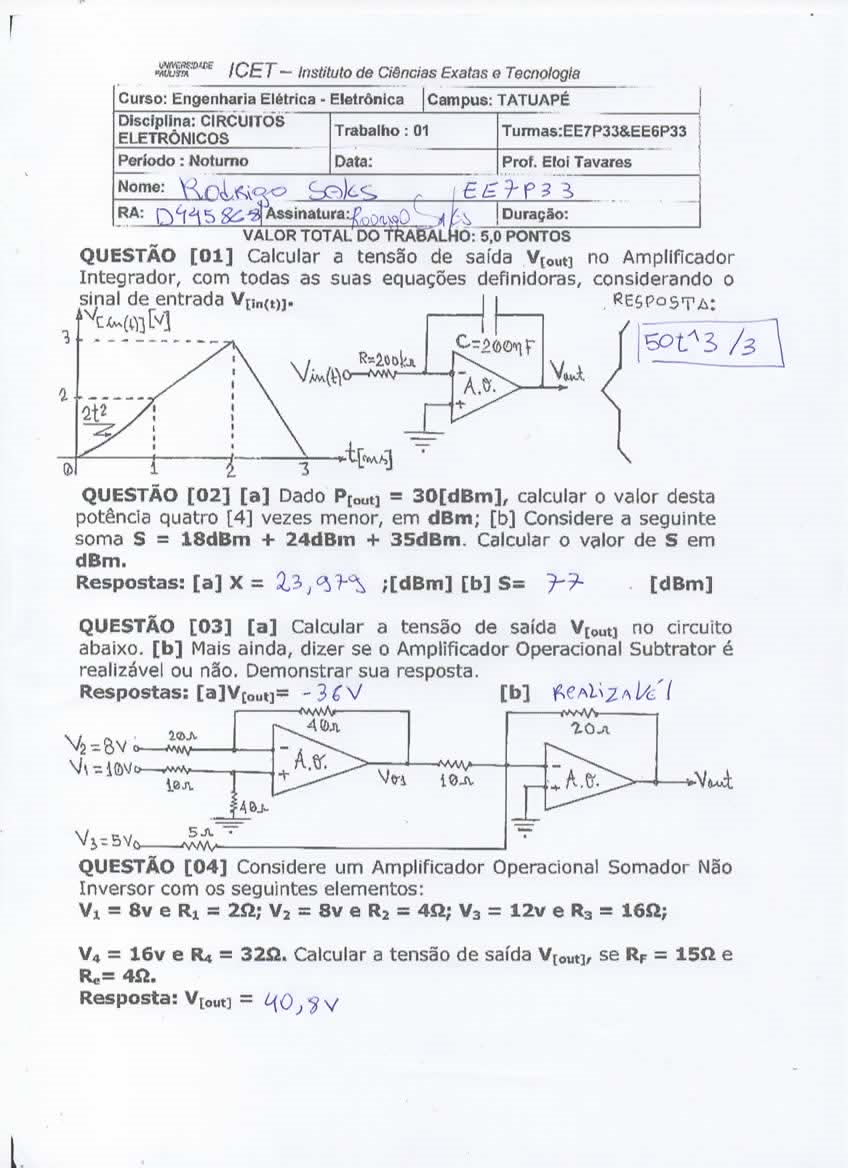 UNIVERSIDADE PAULISTA ICET – Instituto de Ciências Exatas e Tecnologia
Curso: Engenharia Elétrica - Eletrônica Campus: TATUAPÉ
Disciplina: CIRCUITOS ELETRÔNICOS Trabalho : 01 Turmas:EE7P33&EE6P33
Período : Noturno Data: Prof. Eloi Tavares
Nome: Rodrigo Saks EE7P33
RA: Assinatura: Rodrigo Saks Duração:
VALOR TOTAL DO TRABALHO: 5,0 PONTOS
QUESTÃO [01] Calcular a tensão de saída V[out] no Amplificador
Integrador, com todas as suas equações definidoras, considerando o
sinal de entrada V[in(t)].
RESPOSTA:
V[in(t)][V]
3
2
2t²
0 1 2 3 t[ms]
Vin(t) R=200kΩ C=200ηF
- A.O. +
Vout
50t^3 /3
QUESTÃO [02] [a] Dado P[out] = 30[dBm], calcular o valor desta
potência quatro [4] vezes menor, em dBm; [b] Considere a seguinte
soma S = 18dBm + 24dBm + 35dBm. Calcular o valor de S em
dBm.
Respostas: [a] X = 23,979 ;[dBm] [b] S= 77 [dBm]
QUESTÃO [03] [a] Calcular a tensão de saída V[out] no circuito
abaixo. [b] Mais ainda, dizer se o Amplificador Operacional Subtrator é
realizável ou não. Demonstrar sua resposta.
Respostas: [a]V[out]= -36V [b] REALIZAVÉl
V2=8V 20Ω 40Ω
V1=10V 10Ω - A.O. + Vo1 10Ω
40Ω
20Ω
- A.O. + Vout
V3=5V 5Ω
QUESTÃO [04] Considere um Amplificador Operacional Somador Não
Inversor com os seguintes elementos:
V1 = 8v e R1 = 2Ω; V2 = 8v e R2 = 4Ω; V3 = 12v e R3 = 16Ω;
V4 = 16v e R4 = 32Ω. Calcular a tensão de saída V[out], se RF = 15Ω e
Re= 4Ω.
Resposta: V[out] = 40,8v